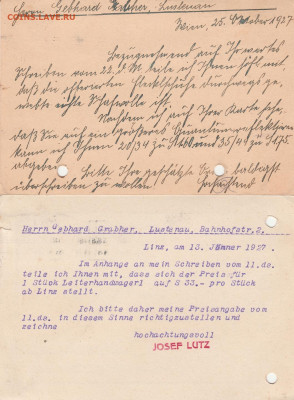 Herrn Gebhard Grabher, Lustenau
Wien, 25. Oktober 1927
Bezugnehmend auf Ihr wertes
Schreiben vom 22. d. M. teile ich Ihnen höfl. mit
daß die offerierten
webte echte Schafwolle ist.
Nachdem ich auf Ihrer Karte sehe,
daß Sie auf ein größeres Quantum reflektieren
kann ich Ihnen 20/34 zu 35/44 zu
abgeben.
Bitte Ihre geschätzte baldigst
überschreiben zu wollen. Hochachtend
Herrn Gebhard Grabher, Lustenau, Bahnhofstr. 2,
Linz, am 13. Jänner 1927.
Im Anhange an mein Schreiben vom 11. ds.
teile ich Ihnen mit, dass sich der Preis für
1 Stück Leiterhandwagerl auf S 33,- pro Stück
ab Linz stellt.
Ich bitte daher meine Preisangabe vom
11. ds. in diesem Sinne richtigzustellen und
zeichne
hochachtungsvoll
JOSEF LUTZ